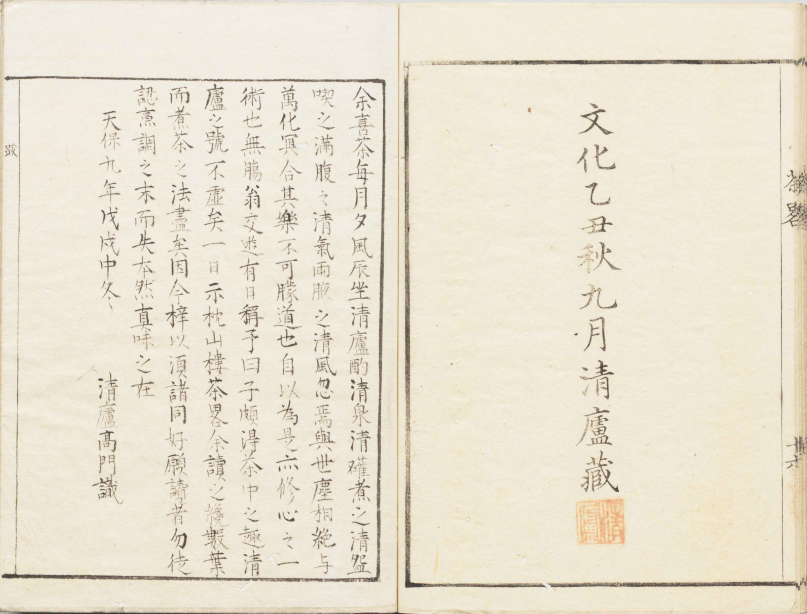 茶略
文化乙丑秋九月清廬藏
清廬
廿六
余喜茶每月夕風辰坐清廬酌清泉清礶煮之清盌
喫之滿腹之清氣兩腋之清風忽焉與世塵相絶与
萬化冥合其樂不可朦道也自以為是亦修心之一
術也無腸翁交遊有日稱予曰子頗得茶中之趣清
廬之號不虛矣一日示枕山樓茶畧余讀之纔數葉
而煮茶之法盡矣因今梓以須諸同好願讀者勿徒
認烹調之末而失本然真味之在
天保九年戊戌中冬
清廬高門識
跋